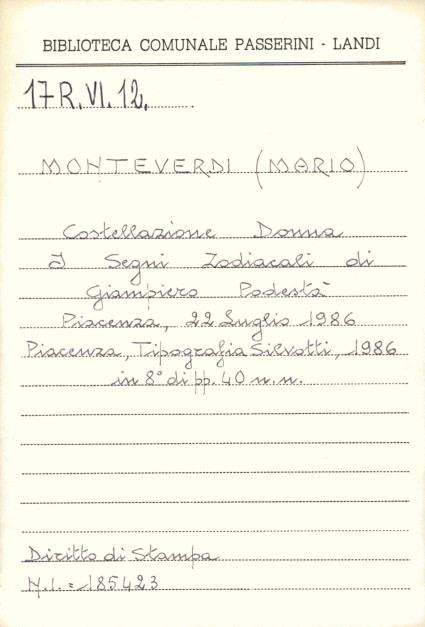 BIBLIOTECA COMUNALE PASSERINI - LANDI
17 R. VI. 12.
MONTEVERDI (MARIO)
Costellazione Donna
I Segni Zodiacali di
Giampiero Podestà
Piacenza, 22 Luglio 1986
Piacenza, Tipografia Silvotti, 1986
in 8° di pp. 40 n.n.
Diritto di Stampa
N.I. = 185423